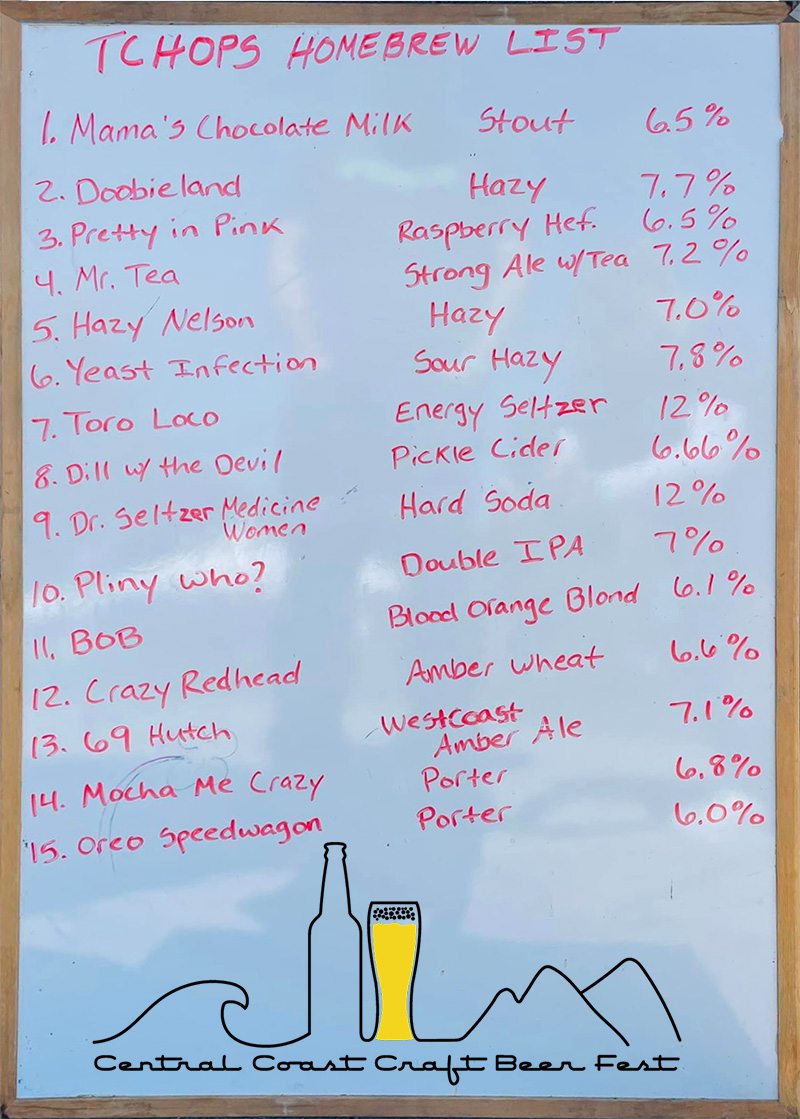 TCHOPS HOMEBREW LIST
1. Mama's Chocolate Milk Stout 6.5%
2. Doobieland Hazy 7.7%
3. Pretty in Pink Raspberry Hef. 6.5%
4. Mr. Tea Strong Ale w/Tea 7.2%
5. Hazy Nelson Hazy 7.0%
6. Yeast Infection Sour Hazy 7.8%
7. Toro Loco Energy Seltzer 12%
8. Dill w/ the Devil Pickle Cider 6.66%
9. Dr. Seltzer Medicine Hard Soda 12%
Women
10. Pliny who? Double IPA 7%
11. BOB Blood Orange Blond 6.1%
12. Crazy Redhead Amber Wheat 6.6%
13. 69 Hutch Westcoast 7.1%
Amber Ale
14. Mocha Me Crazy Porter 6.8%
15. Oreo Speedwagon Porter 6.0%
Central Coast Craft Beer Fest